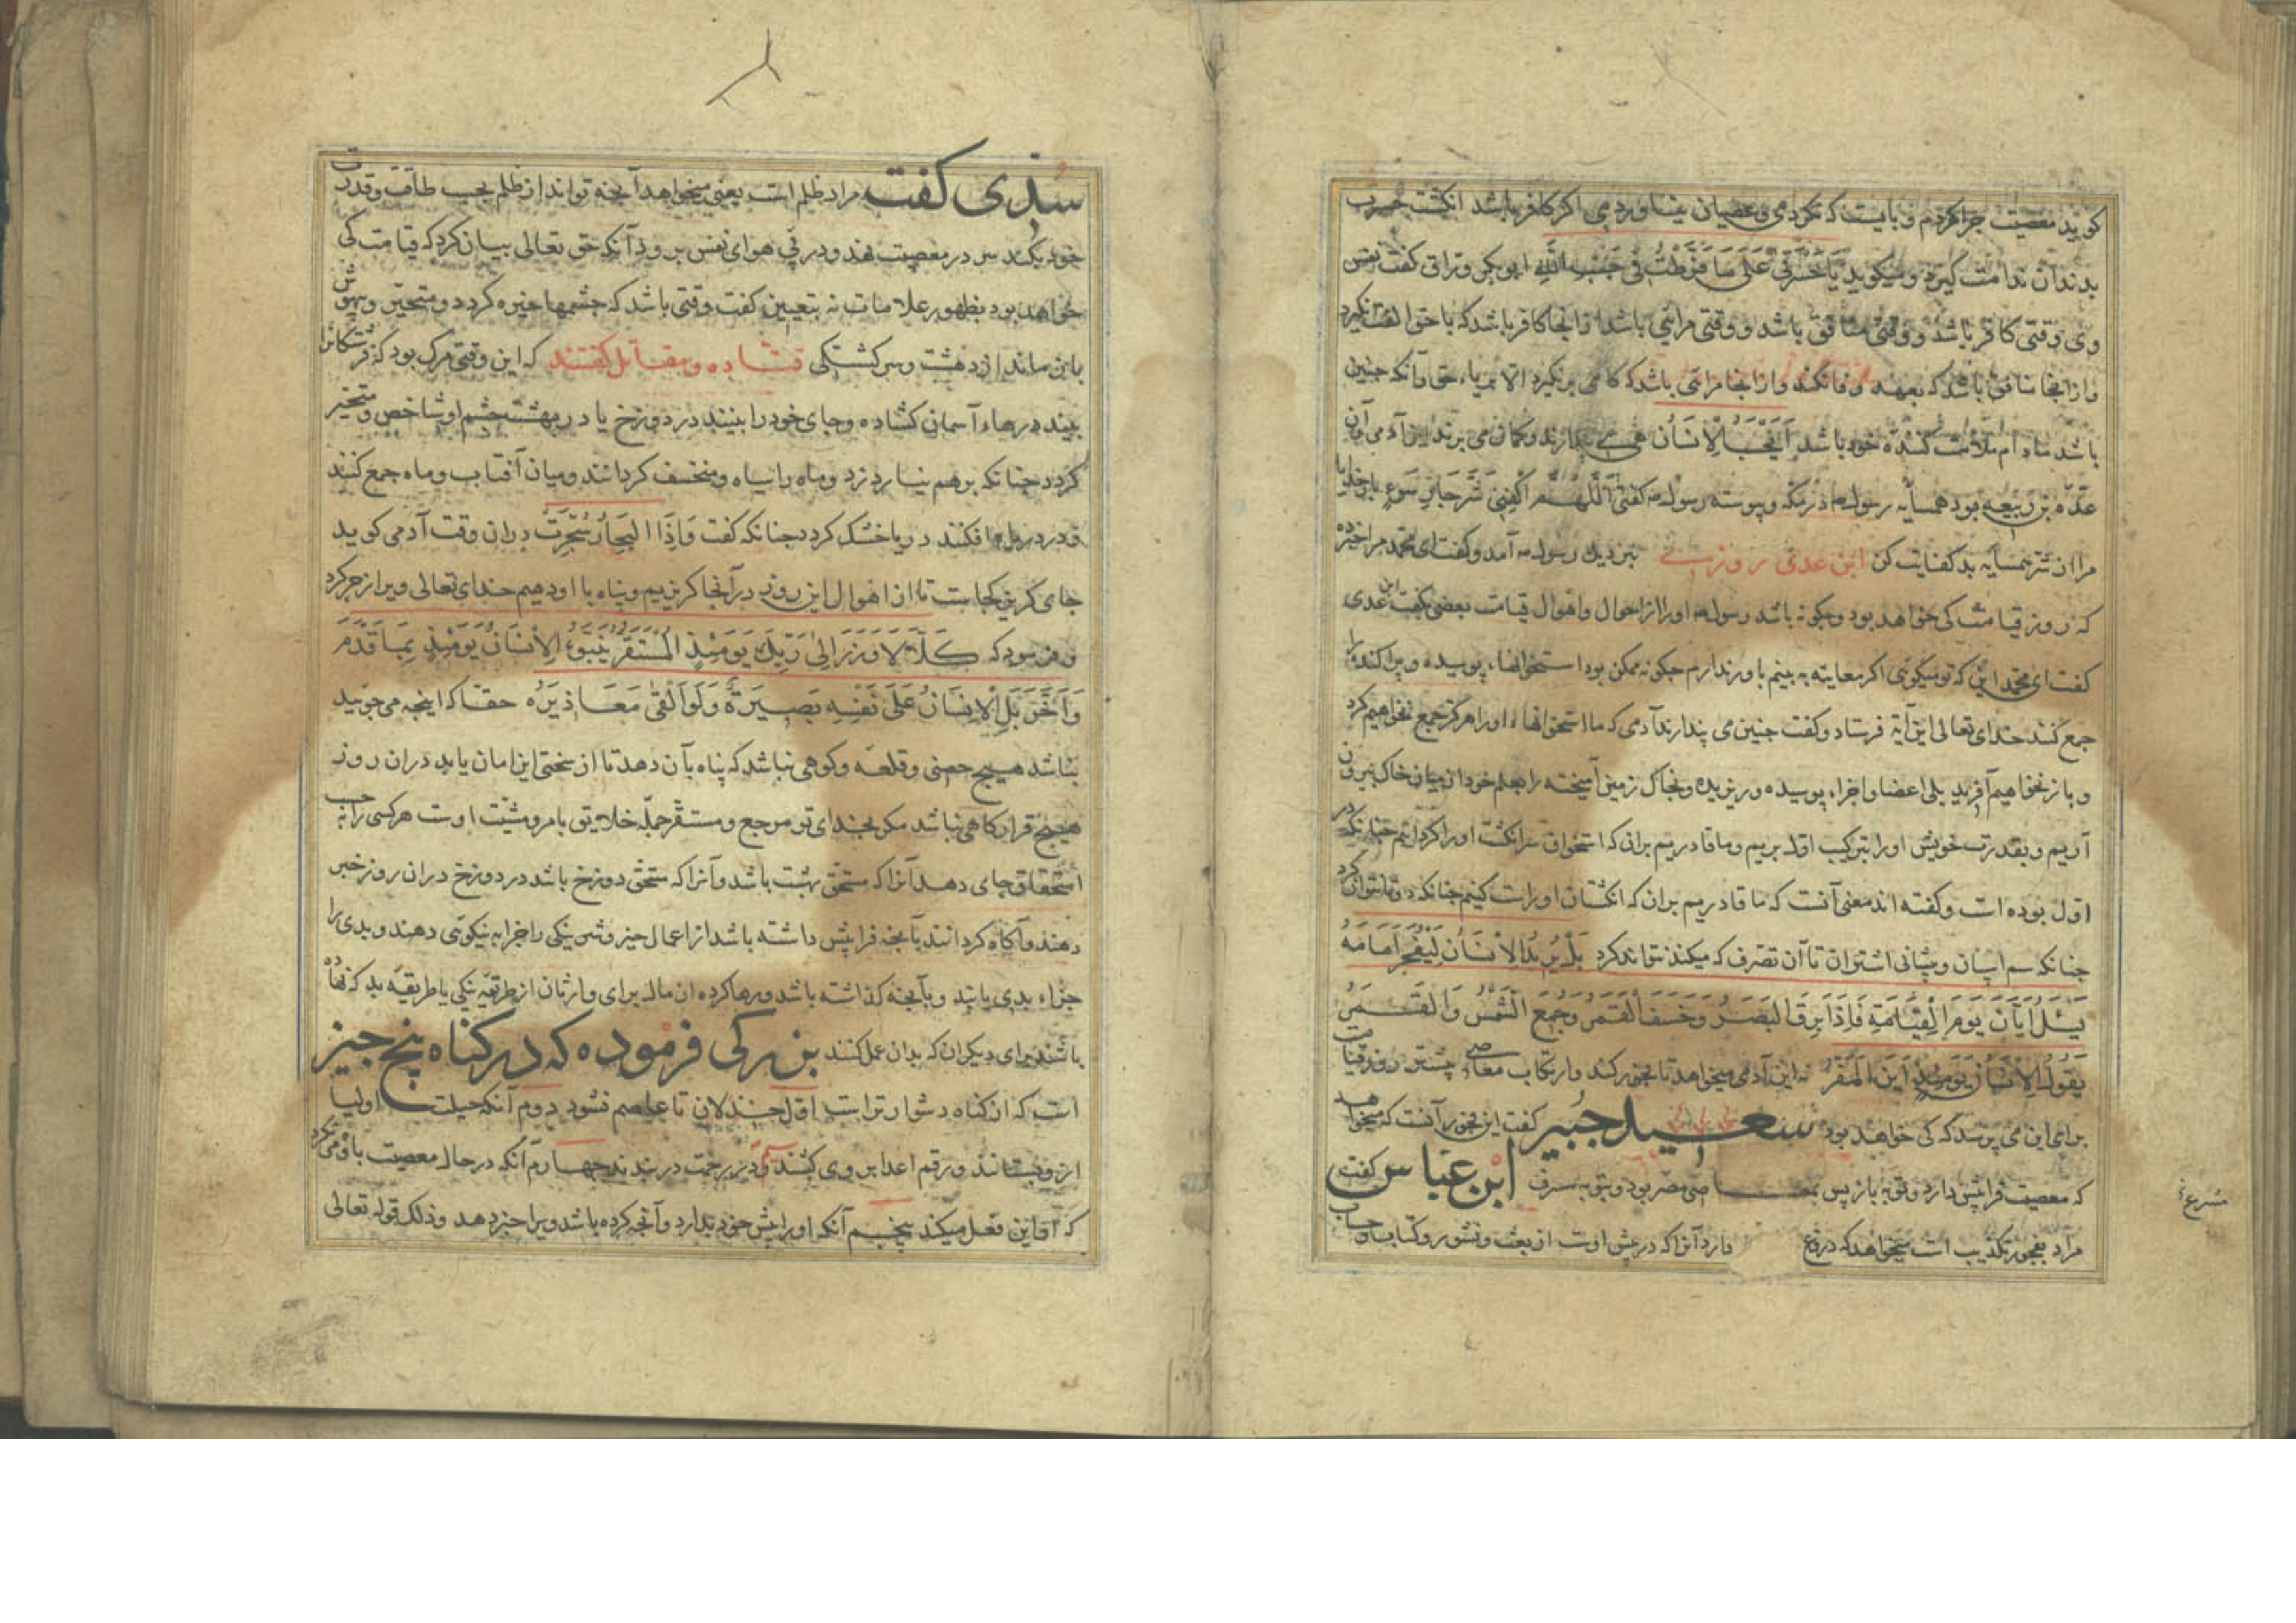 کوید معصیت چرا کردم و بایست که نکردمی و عصیان نیاوردمی اکر کافر باشد انکشت حسرت
بدندان ندامت کیرد و میکوید یَا حَسْرَتٰی عَلٰی مَا فَرَّطْتُ فی جَنْبِ اللهِ ابوبکر وراق کفت نفس
وی وقتی کافر باشد و وقتی منافق باشد و وقتی مرائی باشد از انجا کافر باشد که با حق الفت نکیرد
و از انجا منافق باشد که بعهد وفا نکند و از انجا مرائی باشد که کامی برنکیرد الا بریاء حق وآنکه چنین
باشد مادام ملامت کنندهٔ خود باشد اَیَحْسَبُ الْاِنْسَانُ می پندارند و کمان می برند این آدمی آن
عدی بن ربیعه بود همسایه رسول در مکه و پیوسته رسول کفتی اَللّٰهُمَّ اکْفِنی شَرَّ جَارِ سَوءٍ بار خدایا
مرا از شر همسایه بد کفایت کن ابن عدی روزی بنزدیک رسول آمد و کفت ای محمد مرا خبر ده
که روز قیامت کی خواهد بود و چکونه باشد رسول او را از احوال و اهوال قیامت بعضی کفت ابن عدی
کفت ای محمد این که تو میکوئی اکر معاینه به بینم باور ندارم چکونه ممکن بود استخوانهاء پوسیده و پراکنده را
جمع کنند خدای تعالی این آیة فرستاد و کفت چنین می پندارند آدمی که ما استخوانهاء او را هرکز جمع نخواهیم کرد
و باز نخواهیم آفرید بلی اعضا و اجزاء پوسیده و ریزیده و بخاک زمین آمیخته را بعلم خود از میان خاک بیرون
آریم و بقدرت خویش او را بترکیب اول بریم و ما قادریم بران که استخوان سر انکشت او را کرد آریم چنانکه در
اول بوده است و کفته اند معنی آنست که ما قادریم بران که انکشتان او راست کنیم چنانکه
چنانکه سم اسپان و پیشانی اشتران تا آن تصرف که میکند نتواند کرد بَلْ یُرِیدُ الْاِنْسَانُ لِیَفْجُرَ اَمَامَهُ
یَسْئَلُ اَیَّانَ یَوْمُ الْقِیٰمَةِ فَاِذَا بَرِقَ الْبَصَرُ وَخَسَفَ الْقَمَرُ وَجُمِعَ الشَّمْسُ وَالْقَمَرُ
یَقُولُ الْاِنْسَانُ یَوْمَئِذٍ اَیْنَ الْمَفَرُّ نه این آدمی میخواهد تا فجور کند و ارتکاب معاصی پیشتر روز قیامت
برای این می پرسد که کی خواهد بود سعید جبیر کفت این فجور آنست که میخواهد
که معصیت فرا پیش دارد و توبه باز پس بمعاصی مصر بود و بتوبه مسرف ابن عباس کفت
مراد بفجور تکذیب است میخواهد که دروغ دارد آنرا که در پیش اوست از بعث و نشور و کتاب و حساب
سُدّی کفت مراد ظلم است یعنی میخواهد آنچه تواند از ظلم بحسب طاقت و قدرت
خود بکند سر در معصیت نهد و در پی هوای نفس برود آنکه حق تعالی بیان کرد که قیامت کی
خواهد بود بظهور علامات نه بتعیین کفت وقتی باشد که چشمها خیره کردد و متحیر و بیهوش
باز ماند از دهشت و سرکشتکی قتاده و مقاتل کفتند که این وقتی مرک بود که فرشتکانرا
بیند درهاء آسمان کشاده و جای خود را بینند در دوزخ یا در بهشت چشم او شاخص و متحیر
کردد چنانکه برهم نیارد زد و ماه را سیاه و منخسف کردانند و میان آفتاب و ماه جمع کنند
و در دریاها فکنند دریا خشک کردد چنانکه کفت وَاِذَا الْبِحَارُ سُجِّرَتْ دران وقت آدمی کوید
جای کریز کجاست تا از اهوال این روز در آنجا کریزیم و پناه با او دهیم خدای تعالی ویرا زجر کرد
و فرمود که کَلَّا لَا وَزَرَ اِلٰی رَبِّکَ یَوْمَئِذٍ الْمُسْتَقَرُّ یُنَبَّؤُا الْاِنْسَانُ یَوْمَئِذٍ بِمَا قَدَّمَ
وَاَخَّرَ بَلِ الْاِنْسَانُ عَلٰی نَفْسِهِ بَصِیرَةٌ وَلَوْ اَلْقٰی مَعَاذِیرَهُ حقا که اینچه می جوئید
نباشد هیچ حصنی و قلعه و کوهی نباشد که پناه بآن دهد تا از سختی این امان یابد دران روز
هیچ قرارکاهی نباشد مکر بخدای تو مرجع و مستقر جمله خلایق بامر و مشیت اوست هرکسی را بحسب
استحقاق جای دهد آنرا که مستحق بهشت باشد و آنرا که مستحق دوزخ باشد در دوزخ دران روز خبر
دهند و آکاه کردانند بآنچه فرا پیش داشته باشد از اعمال خیر و شر نیکی را جزا به نیکوئی دهند و بدی را
جزاء بدی یابند و بآنچه کذاشته باشد و رها کرده از مال برای وارثان از طریقه نیکی یا طریقه بد که نهاده
باشند برای دیکران که بدان عمل کنند بزرکی فرموده که در کناه پنج چیز
است که از کناه دشوارتر است اول خذلان تا عاصم نشود دوم آنکه حیلت اولیا
ازو بستانند و رقم اعدا بر وی کشند سیم در رحمت دربندند چهارم آنکه در حال معصیت باو می نکرد
که آقا این فعل میکند پنجم آنکه او را پیش خود بدارد و آنچه کرده باشد ویرا خبر دهد و ذلک قوله تعالی